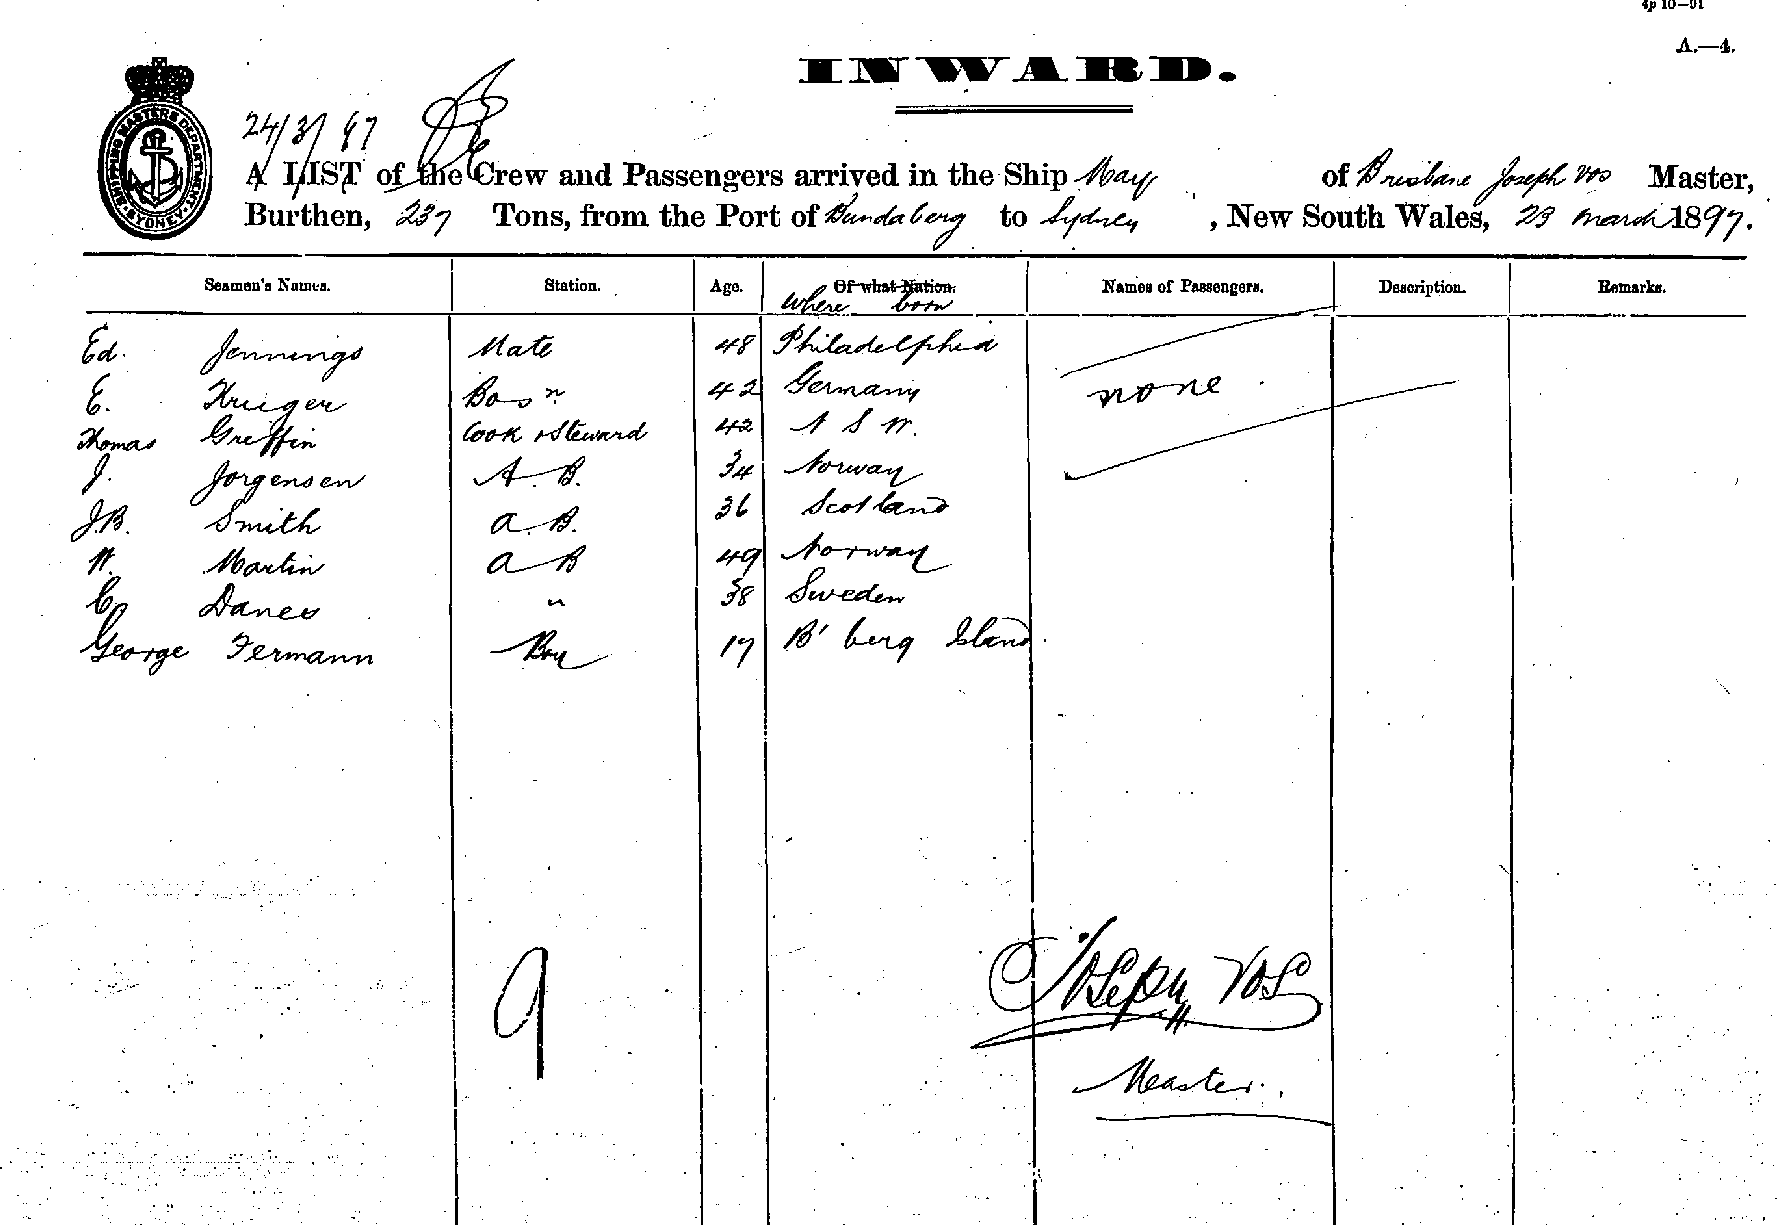 4p 10—91
A.—4.
INWARD.
24/3/97
SHIPPING MASTERS DEPARTMENT SYDNEY
A LIST of the Crew and Passengers arrived in the Ship May of Brisbane Joseph Vos Master,
Burthen, 237 Tons, from the Port of Bundaberg to Sydney, New South Wales, 23 March 1897.
Seamen's Names. Station. Age. Of what Nation. Names of Passengers. Description. Remarks.
where born
Ed. Jennings Mate 48 Philadelphia
E. Kruger Bosn 42 Germany none
Thomas Greffin Cook & Steward 42 N S W.
J. Jorgensen A. B. 34 Norway
J.B. Smith A. B. 36 Scotland
W. Martin A B 49 Norway
Danes " 38 Sweden
George Fermann Boy 17 B'berg Island
9
Joseph Vos
Master.